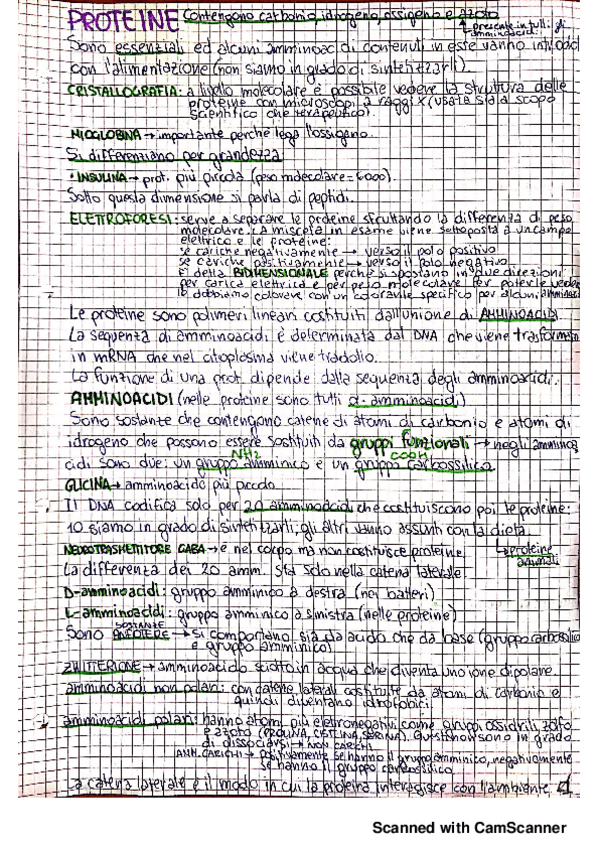 PROTEINE contengono carbonio, idrogeno, ossigeno e azoto
↳ presente in tutti gli amminoacidi.
Sono essenziali ed alcuni amminoacidi contenuti in esse vanno introdotti
con l'alimentazione (non siamo in grado di sintetizzarli).
CRISTALLOGRAFIA: a livello molecolare è possibile vedere la struttura delle
proteine con microscopi a raggi X (usata sia a scopo
scientifico che terapeutico).
MIOGLOBINA → importante perché lega l'ossigeno.
Si differenziano per grandezza
• INSULINA → prot. più piccola (peso molecolare = 6000).
Sotto questa dimensione si parla di peptidi.
ELETTROFORESI: serve a separare le proteine sfruttando la differenza di peso
molecolare. La miscela in esame viene sottoposta a un campo
elettrico e le proteine:
se cariche negativamente → verso il polo positivo
se cariche positivamente → verso il polo negativo
È detta BIDIMENSIONALE perché si spostano in due direzioni:
per carica elettrica e per peso molecolare. Per poterle vedere
le dobbiamo colorare con un colorante specifico per alcuni
Le proteine sono polimeri lineari costituiti dall'unione di AMMINOACIDI.
La sequenza di amminoacidi è determinata dal DNA che viene
in mRNA che nel citoplasma viene tradotto.
La funzione di una prot. dipende dalla sequenza degli amminoacidi.
AMMINOACIDI (nelle proteine sono tutti α-amminoacidi)
Sono sostanze che contengono catene di atomi di carbonio e atomi di
idrogeno che possono essere sostituiti da gruppi funzionali → negli amminoa
cidi sono due: un gruppo amminico e un gruppo carbossilico.
NH₂ COOH
GLICINA → amminoacido più piccolo
Il DNA codifica solo per 20 amminoacidi che costituiscono poi le proteine:
10 siamo in grado di sintetizzarli; gli altri vanno assunti con la dieta.
↳ proteine animali
NEUROTRASMETTITORE GABA → è nel corpo ma non costituisce proteine.
La differenza dei 20 amm. sta solo nella catena laterale.
D-amminoacidi: gruppo amminico a destra (nei batteri)
L-amminoacidi: gruppo amminico a sinistra (nelle proteine)
SOSTANZE
Sono ANFOTERE → si comportano sia da acido che da base (gruppo carbossilico
e gruppo amminico)
ZWITTERIONE → amminoacido sciolto in acqua che diventa uno ione dipolare.
amminoacidi non polari: con catene laterali costituite da atomi di carbonio e
quindi diventano idrofobici.
amminoacidi polari: hanno atomi più elettronegativi come gruppi ossidrili, zolfo
e azoto (PROLINA, CISTINA, SERINA). Questi non sono in grado
di dissociarsi → NON CARICHI
AMM. CARICHI → positivamente se hanno il gruppo amminico, negativamente
se hanno il gruppo carbossilico.
La catena laterale è il modo in cui la proteina interagisce con l'ambiente
Scanned with CamScanner